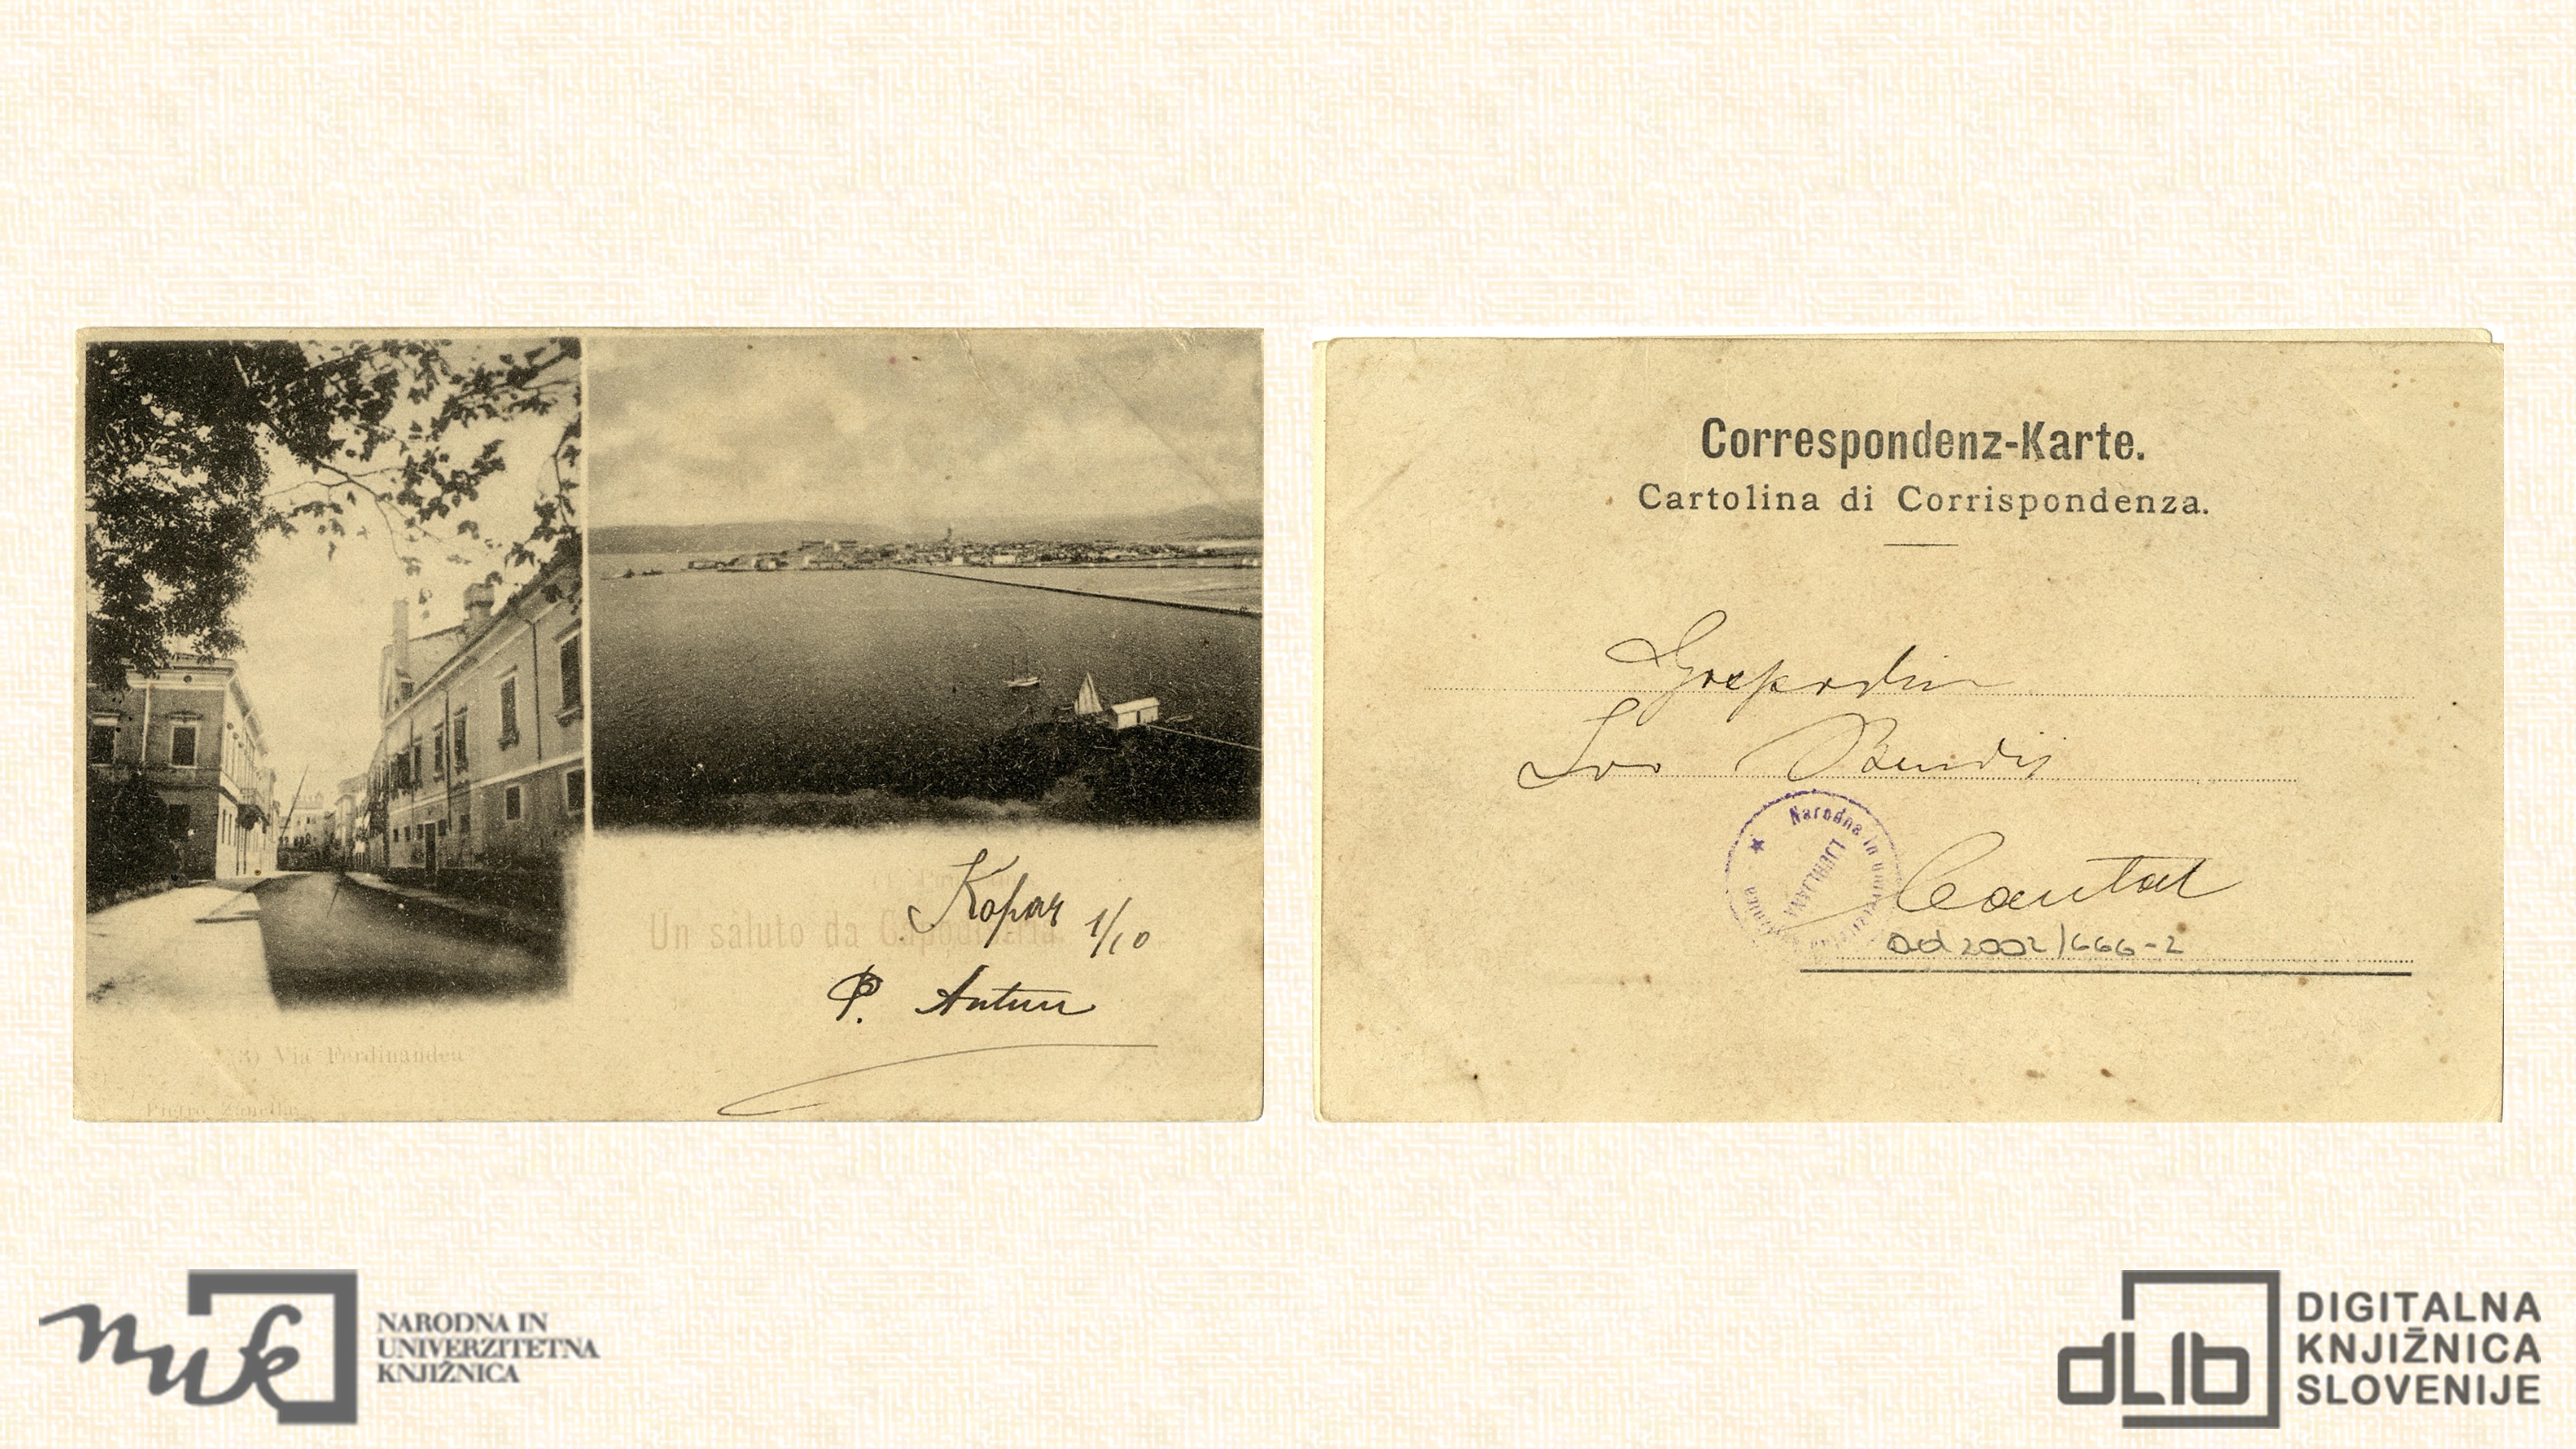 Un saluto da Capodistria
Kopar 1/10
P. Antun
(3) Via Ferdinandea
Pietro Zanella
Correspondenz-Karte.
Cartolina di Corrispondenza.
Gospodin
Ivo
Narodna in univerzitetna knjižnica
LJUBLJANA
ad 2002/666-2
nuk
NARODNA IN
UNIVERZITETNA
KNJIŽNICA
dLib
DIGITALNA
KNJIŽNICA
SLOVENIJE